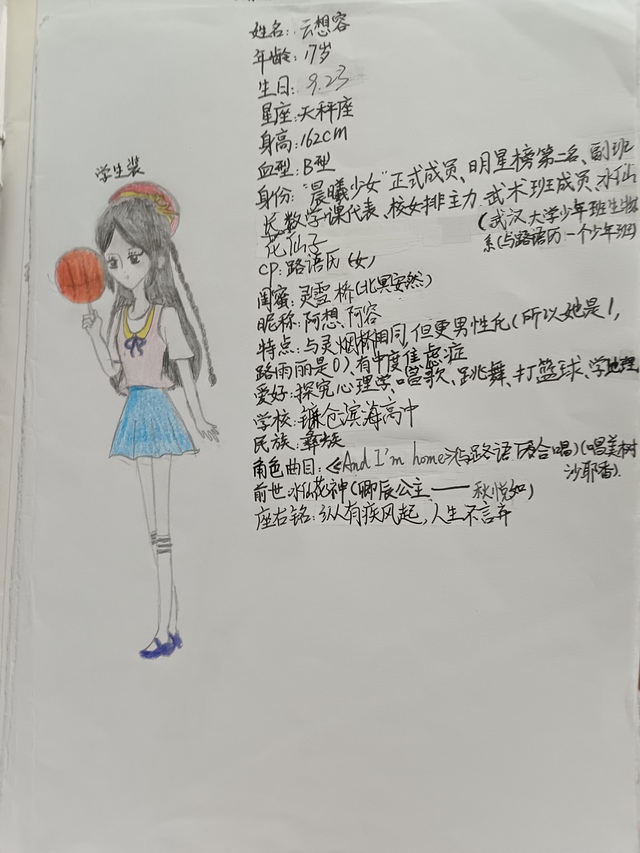 姓名:云想容
年龄:17岁
生日:9.23
星座:天秤座
身高:162cm
血型:B型
学生装
身份:"晨曦少女"正式成员、明星榜第二名、副班
长、数学课代表、校女排主力、武术班成员、水仙
花仙子
(武汉大学少年班生物
系(与路语历一个少年班)
CP:路语历(女)
闺蜜:灵雪桥(北冥安然)
昵称:阿想、阿容
特点:与灵烟桥相同,但更男性化(所以她是1,
路雨丽是0)、有中度焦虑症
爱好:探究心理学、唱歌、跳舞、打篮球、学地理
学校:镰仓滨海高中
民族:彝族
角色曲目:《And I'm home》(与路语历合唱)(唱美树
沙耶香)
前世:水仙花神(卿辰公主——秋悦如)
座右铭:纵有疾风起,人生不言弃